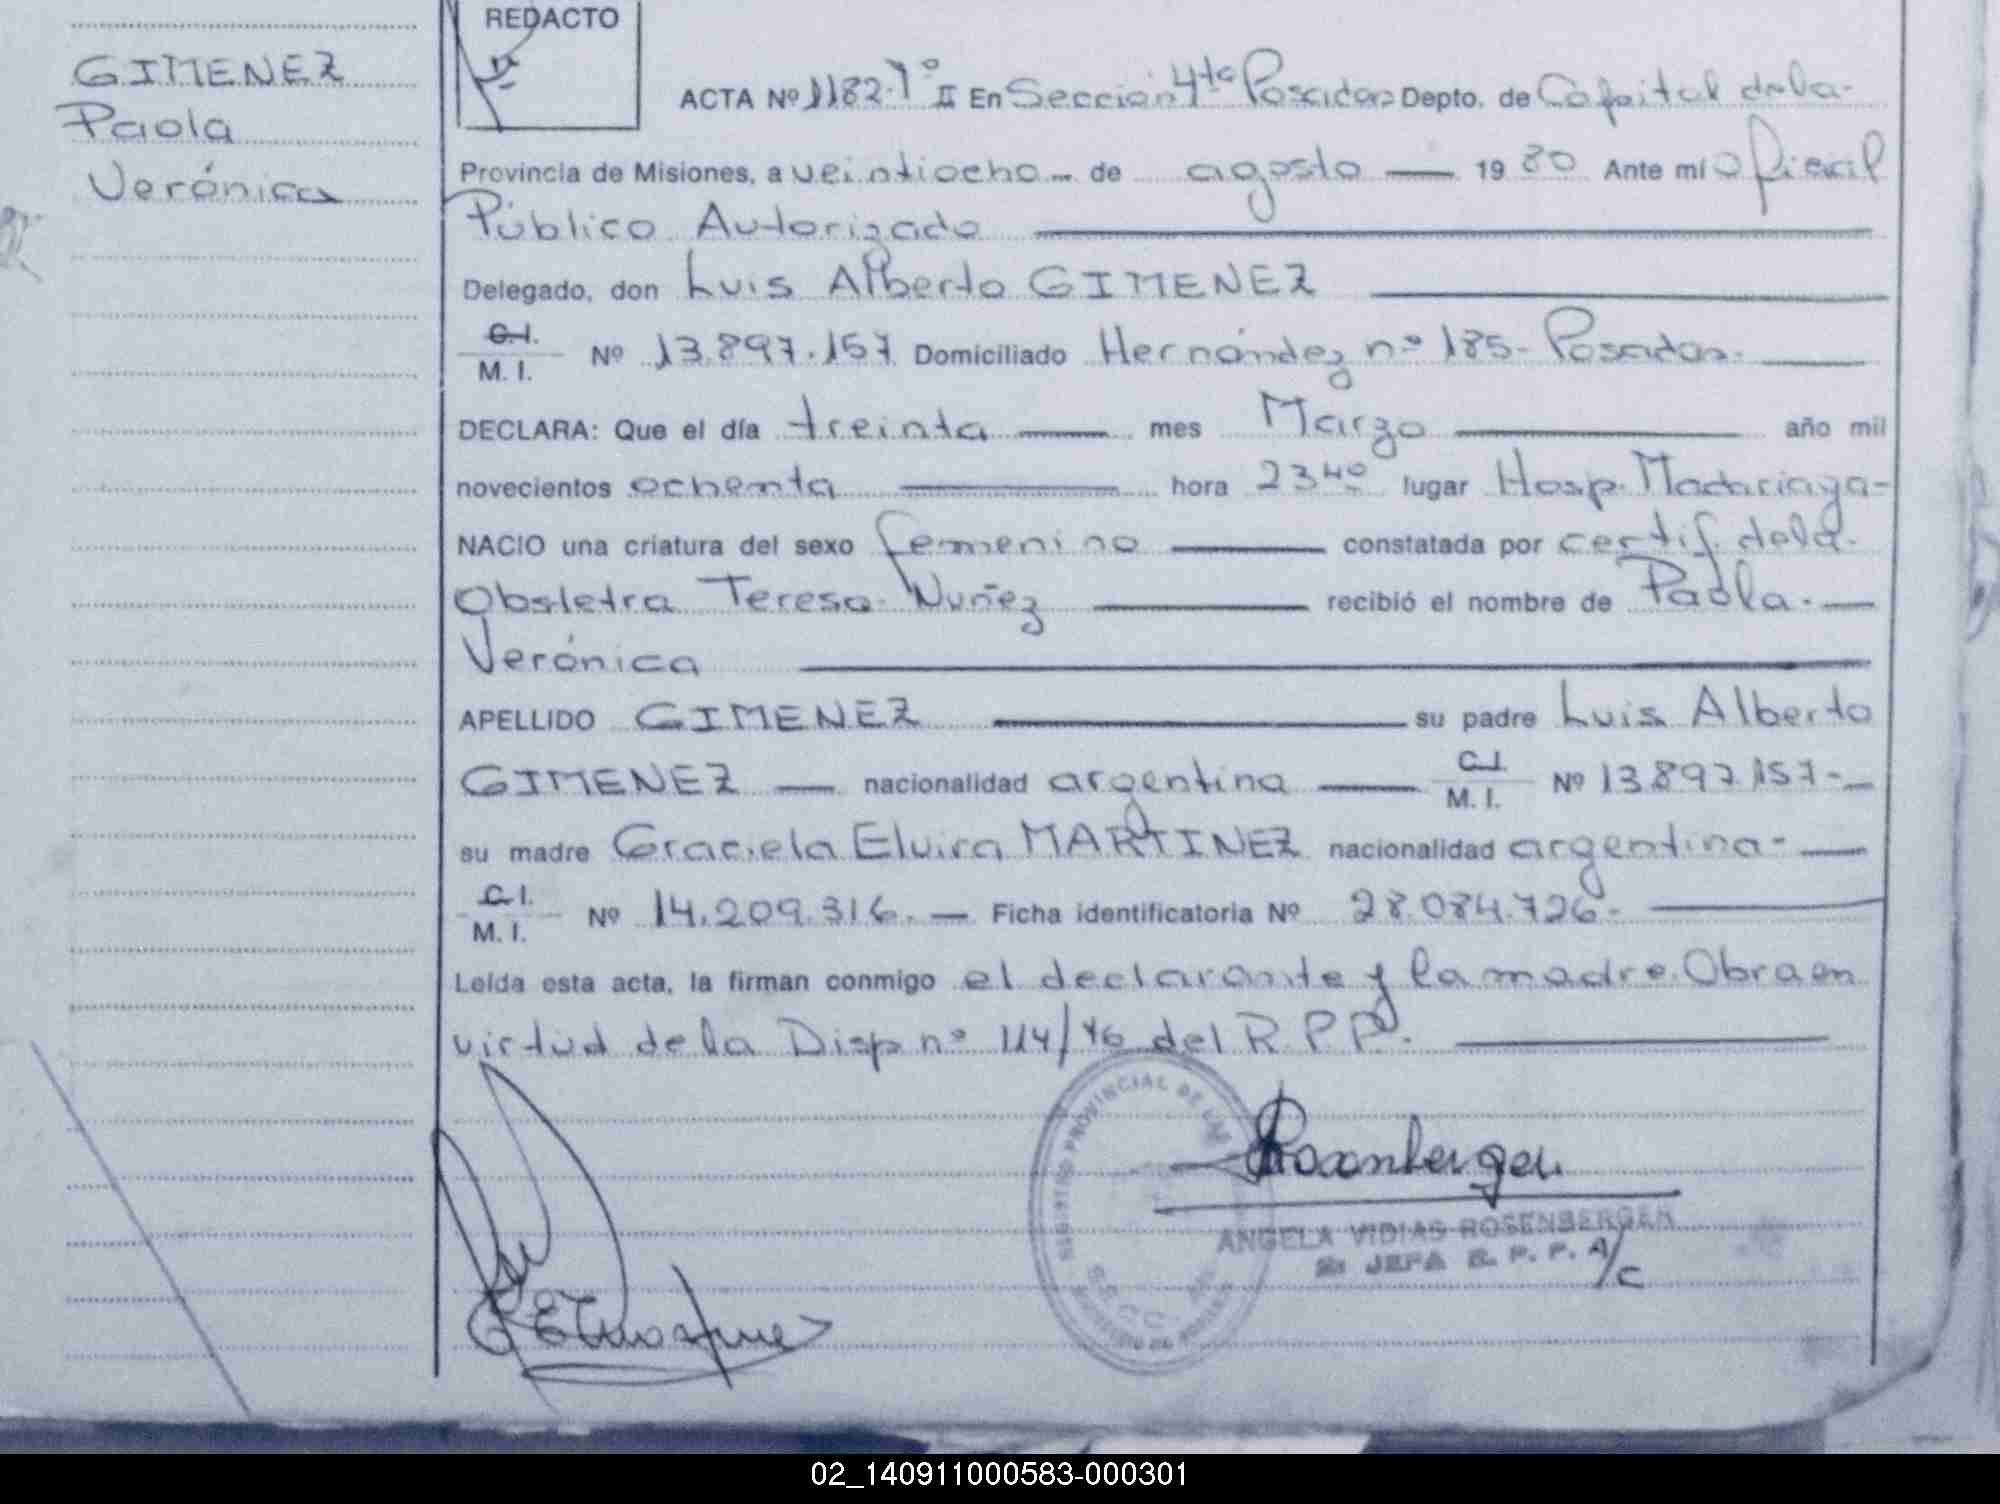 REDACTO
GIMENEZ
Paola
Verónica
ACTA Nº 1182. Tº II En Sección 4ta Posadas Depto. de Capital de la-
Provincia de Misiones, a veintiocho - de agosto — 1980 Ante mí Oficial
Público Autorizado
Delegado, don Luis Alberto GIMENEZ
C.I.
M. I. Nº 13.897.157 Domiciliado Hernández nº 185- Posadas-
DECLARA: Que el día treinta — mes Marzo — año mil
novecientos ochenta — hora 23 40 lugar Hosp. Madariaga-
NACIO una criatura del sexo femenino — constatada por certif. de la-
Obstetra Teresa Nuñez — recibió el nombre de Paola. —
Verónica
APELLIDO GIMENEZ — su padre Luis Alberto
GIMENEZ — nacionalidad argentina — C.I. M. I. Nº 13.897.157-
su madre Graciela Elvira MARTINEZ nacionalidad argentina- —
C.I.
M. I. Nº 14.209.316. — Ficha identificatoria Nº 28.084.726-
Leída esta acta, la firman conmigo el declarante y la madre. Obra en
virtud de la Disp nº 114/76 del R P P.
REGISTRO PROVINCIAL DE LAS
Rosenberger
ANGELA VIDIAS ROSENBERGER
JEFA R. P. P. A/C
02_140911000583-000301